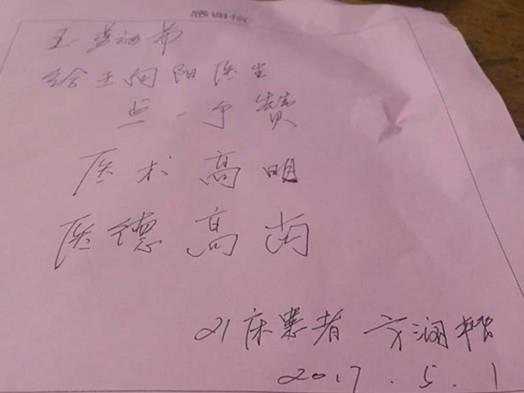 感谢信
给王向阳医生
点一个赞
医术高明
医德高尚
21床患者 方润
2017.5.1